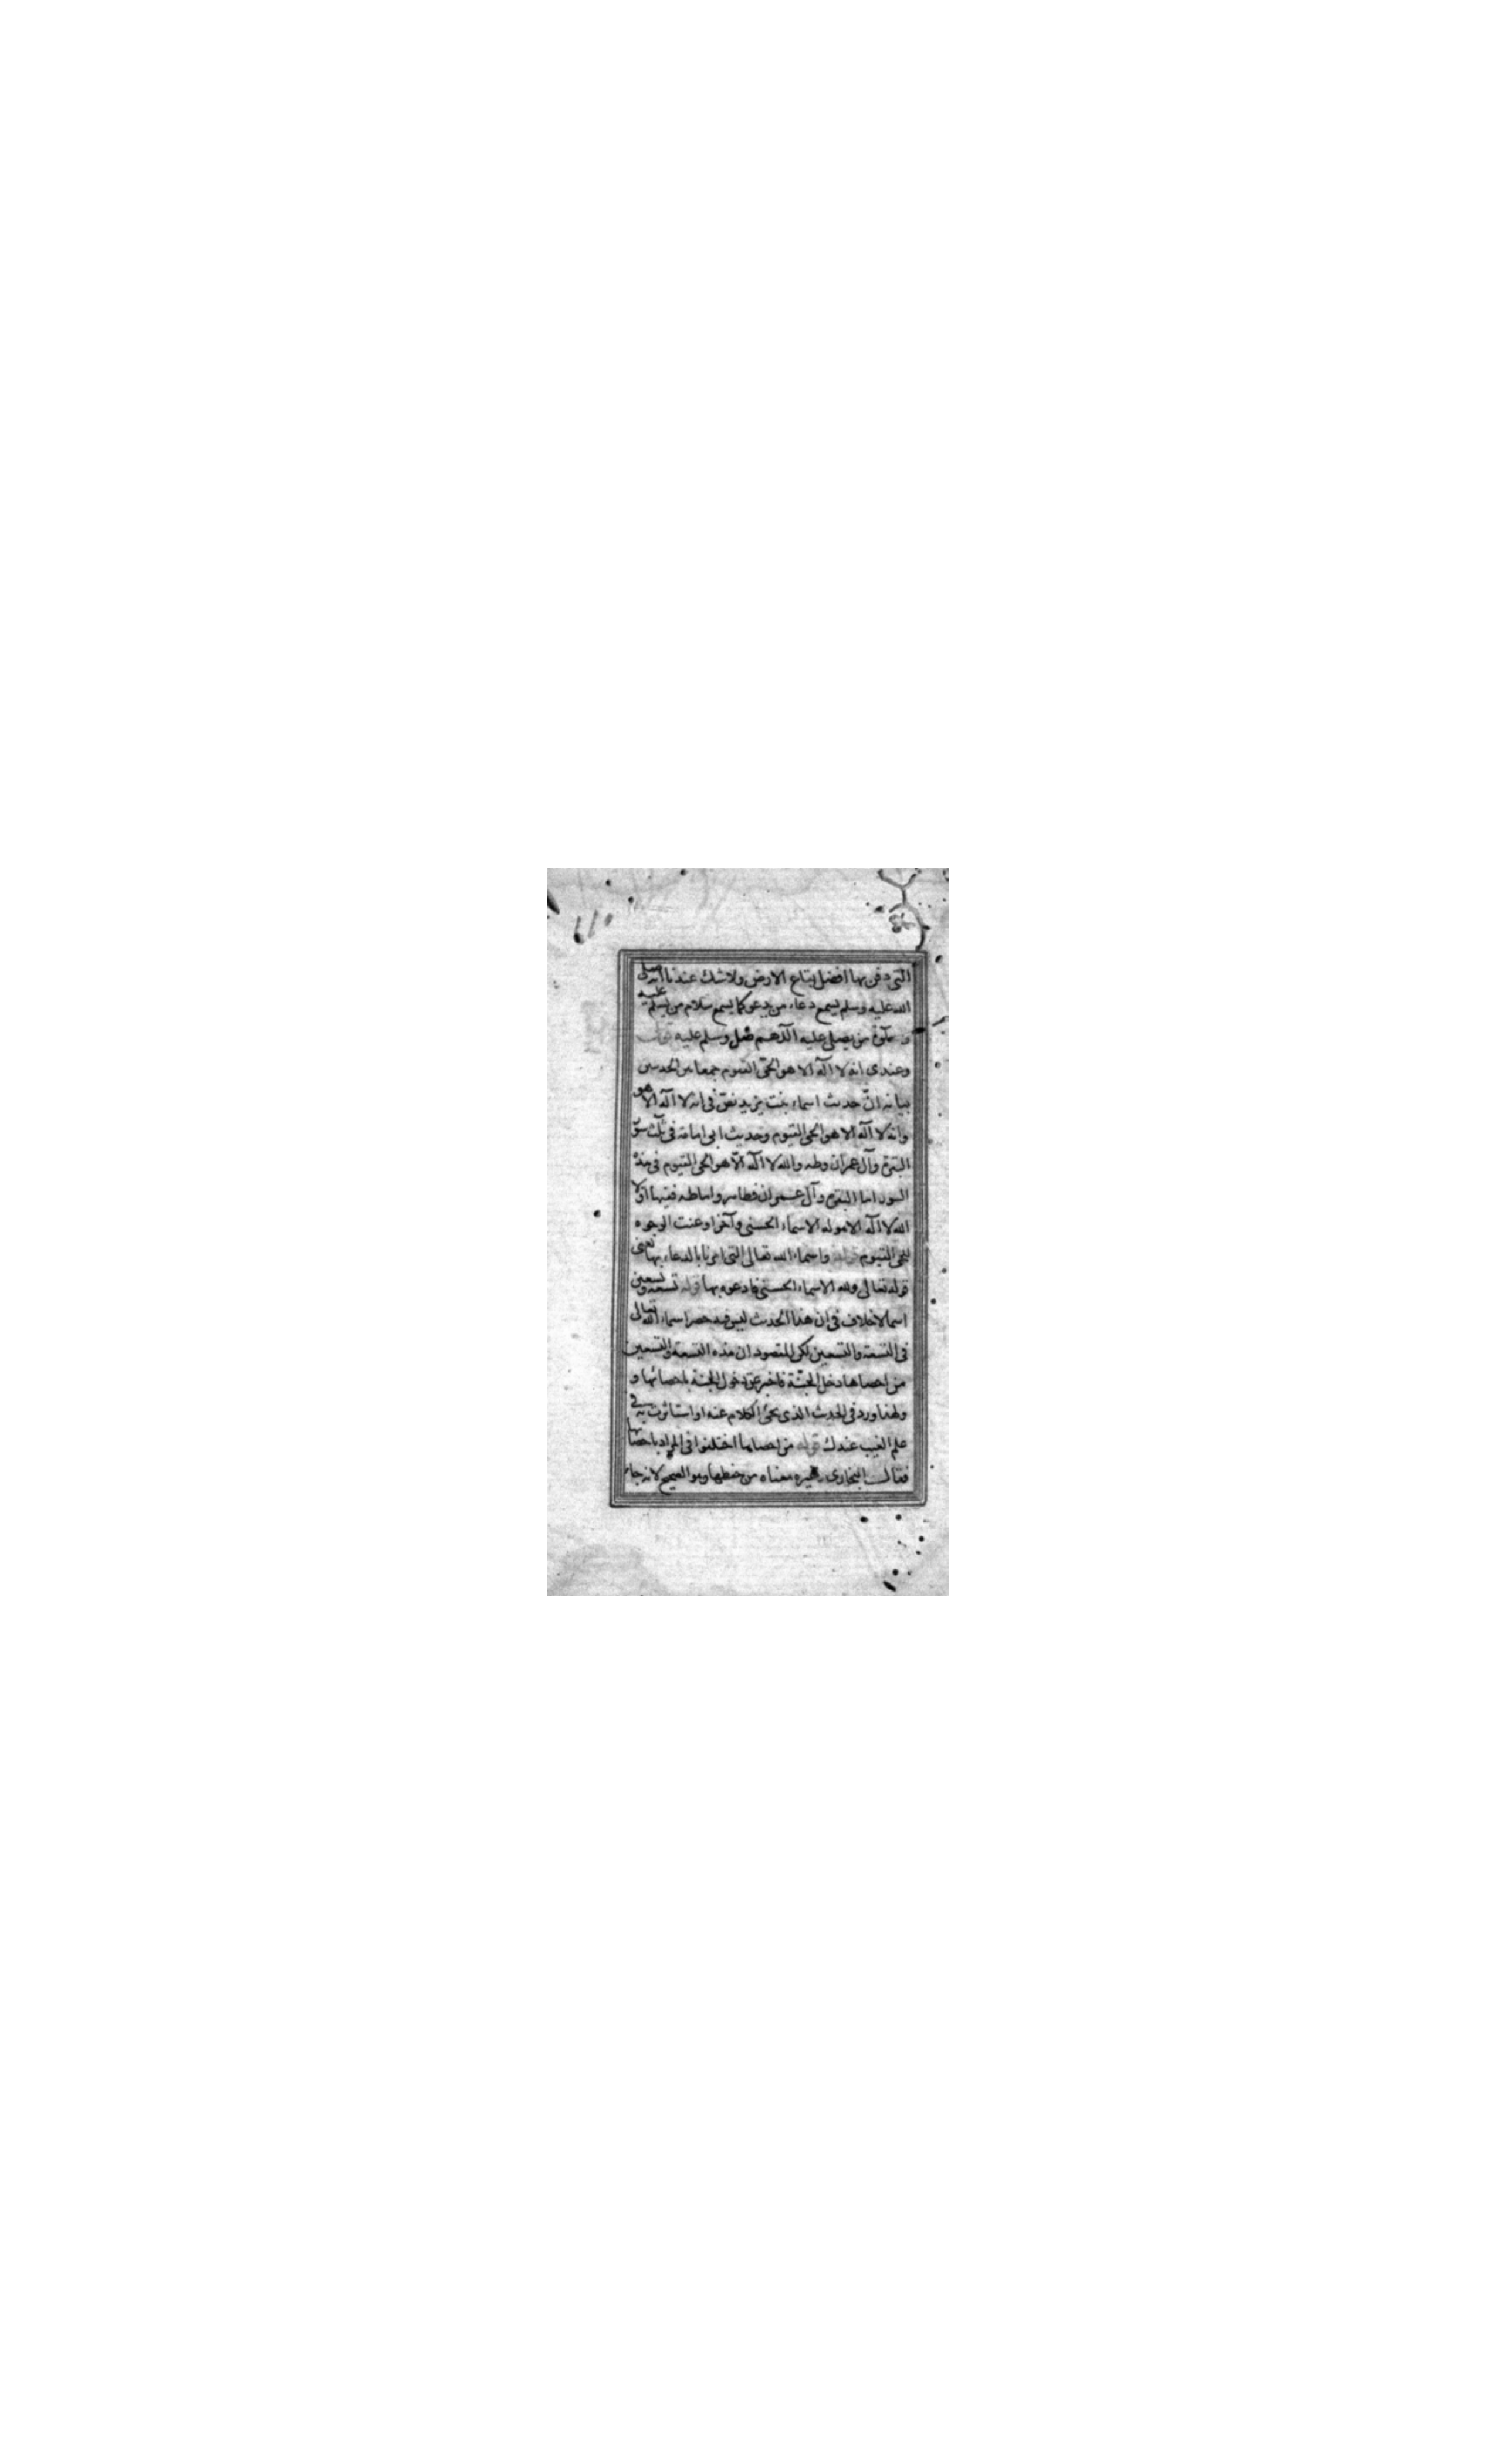 التى دفن بها افضل بقاع الارض ولاشك عندنا انه صلى
الله عليه وسلم يسمع دعاء من يدعو كما يسمع سلام من يسلم عليه
وصلوة من يصلى عليه اللهم صل وسلم عليه قوله
وعندى انه لا اله الا هو الحى القيوم جمعا بين الحديثين
بيانه ان حديث اسماء بنت يزيد نص فى انه لا اله الا هو
وانه لا اله الا هو الحى القيوم وحديث ابى امامة فى ثلث سور
البقرة وآل عمران وطه والله لا اله الا هو الحى القيوم فى هذه
السور اما البقرة وآل عمران فظاهر واما طه ففيها اولا
الله لا اله الا هو له الاسماء الحسنى وآخرا وعنت الوجوه
للحى القيوم قوله واسماء الله تعالى التى امرنا بالدعاء بها يعنى
قوله تعالى ولله الاسماء الحسنى فادعوه بها قوله تسعة وتسعين
اسما لاخلاف فى ان هذا الحديث ليس فيه حصر اسماء الله تعالى
فى التسعة والتسعين لكن المقصود ان هذه التسعة والتسعين
من احصاها دخل الجنة فاخبر عن دخول الجنة باحصائها و
ولهذا ورد فى الحديث الذى يجئ الكلام عنه او استاثرت به فى
علم الغيب عندك قوله من احصاها اختلفوا فى المراد باحصائها
فقال البخارى وغيره معناه من حفظها وهو الصحيح لانه جاء